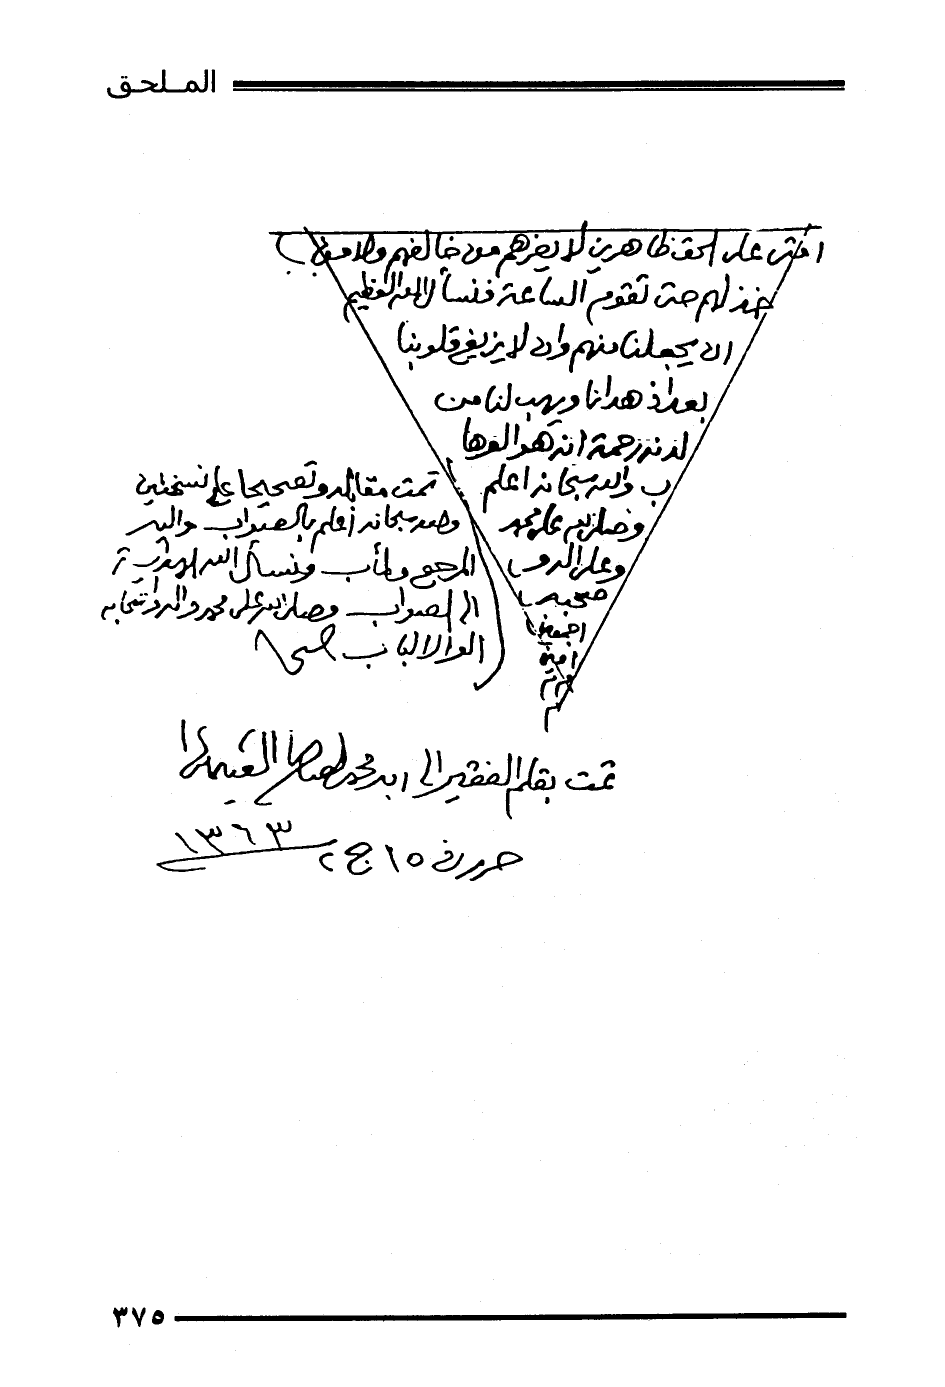 الملحق
امتي على الحق ظاهرين لا يضرهم من خالفهم ولا من
خذلهم حتى تقوم الساعة فنسأل الله العظيم
ان يجعلنا منهم وان لا يزيغ قلوبنا
بعد اذ هدانا ويهب لنا من
لدنه رحمة انه هو الوها
ب والله سبحانه اعلم
وصلى الله على محمد
وعلى اله و
صحبه
اجمعين
امين
تمت مقابلة وتصحيحا على نسختين
والله سبحانه أعلم بالصواب واليه
المرجع والمأب ونسأل الله
الى الصواب وصلى الله على محمد واله واصحابه
اولو الالباب
تمت بقلم الفقير الى
حرر في ١٥ ج ٢
١٣٦٣
٣٧٥